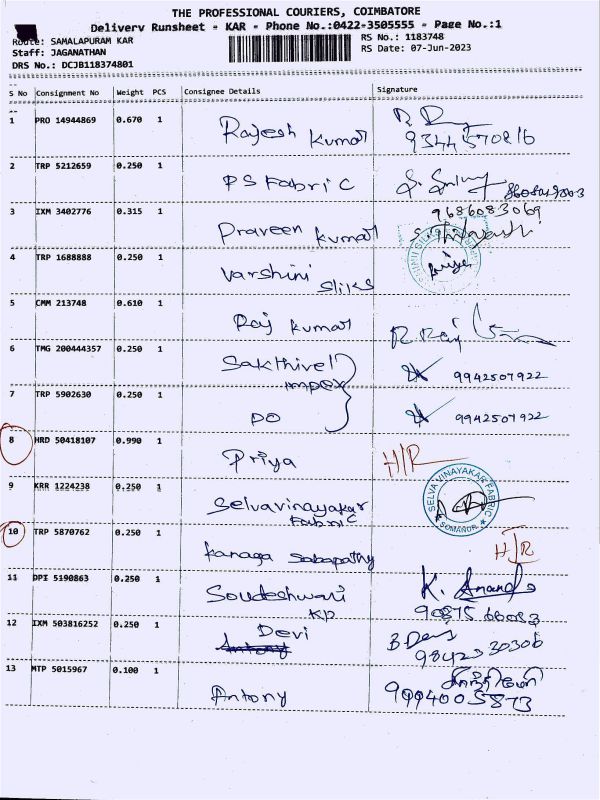 THE PROFESSIONAL COURIERS, COIMBATORE
Delivery Runsheet - KAR - Phone No.:0422-3505555 - Page No.:1
Route: SAMALAPURAM KAR
RS No.: 1183748
Staff: JAGANATHAN
RS Date: 07-Jun-2023
DRS No.: DCJB118374801
S No Consignment No Weight PCS Consignee Details Signature
1 PRO 14944869 0.670 1 Rajesh Kumar
9344570816
2 TRP 5212659 0.250 1 PS Fabric
3 IXM 3402776 0.315 1 Praveen Kumar 9686083069
4 TRP 1688888 0.250 1 Varshini Silks
5 CMM 213748 0.610 1 Raj Kumar R. Raj
6 TMG 200444357 0.250 1 Sakthivel impex 9942507922
7 TRP 5902630 0.250 1 DO 9942507922
8 HRD 50418107 0.990 1 Priya H/R
9 KRR 1224238 0.250 1 Selvavinayakar Fabric
SELVA VINAYAKAR FABRIC
SOMANUR
10 TRP 5870762 0.250 1 Kanaga Sabapathy H/R
11 DPI 5190863 0.250 1 Soudeshwari K. Anand
12 IXM 503816252 0.250 1 Devi B Devi
Antony 9842330306
13 MTP 5015967 0.100 1 Antony
9994005873